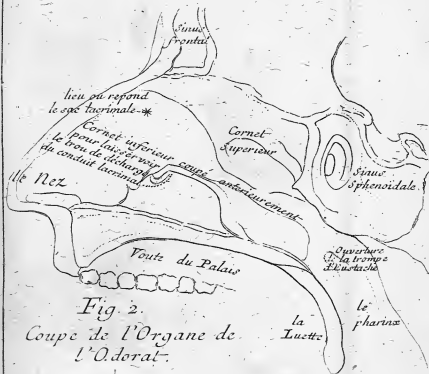 Sinus
frontal
lieu ou repond
le sac lacrimale *
Cornet inferieur coupé anterieurement
pour laisser voir
le trou de décharge
du conduit lacrimal
Cornet
Superieur
Sinus
Sphenoidale.
le Nez
Ouverture
de la trompe
d'Eustache
Voute du Palais
la
Luette
le
pharinx
Fig. 2.
Coupe de l'Organe de
l'Odorat.